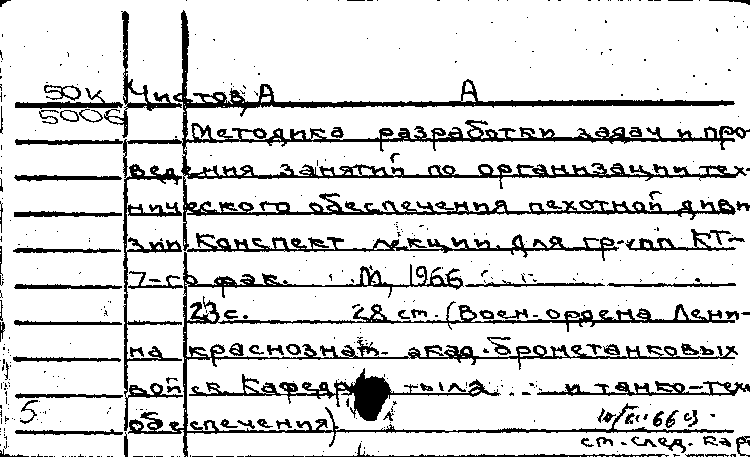 50К Чистов, А А
5006
Методика разработки задач и про-
ведения занятий по организации тех-
нического обеспечения пехотной диви-
зии. Конспект лекции для групп КТ-
7-го фак. М, 1966
23 с. 28 ст. (Воен. ордена Лени-
на краснознам. акад. бронетанковых
войск Кафедра тыла и танко-тех
обеспечения).
5
ст. след. кар